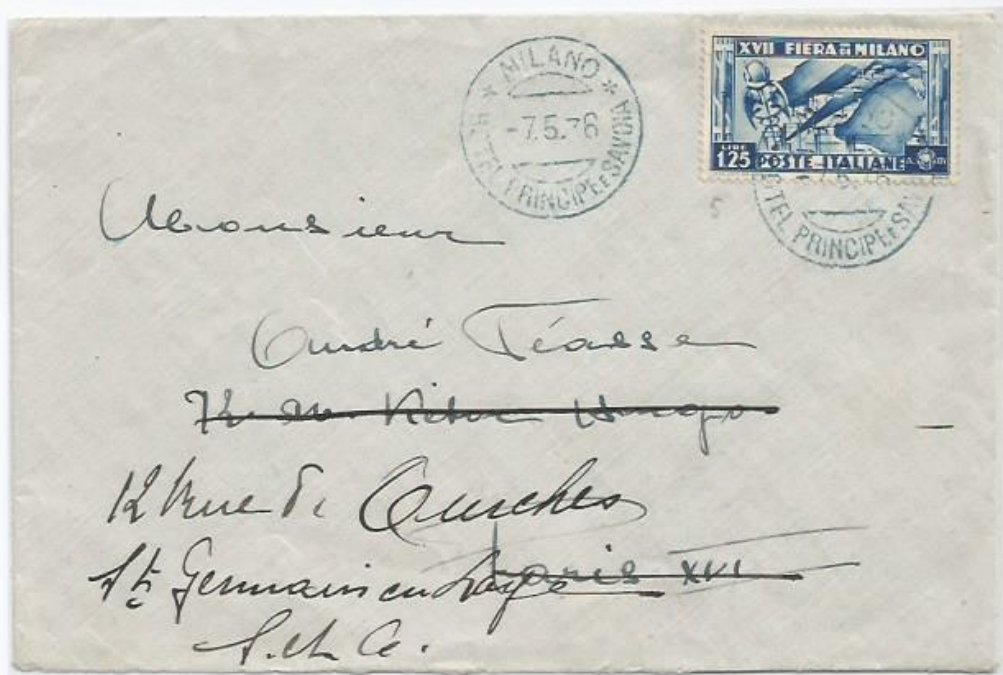 MILANO
-7.5.36
PRINCIPE E SAVOIA
XVII FIERA DI MILANO
LIRE
1.25 POSTE ITALIANE
TEL PRINCIPE E SAV
5
Monsieur
André Téasse
Victor Hugo
12 Rue de
St Germain en Laye
Paris XVI
S. et O.